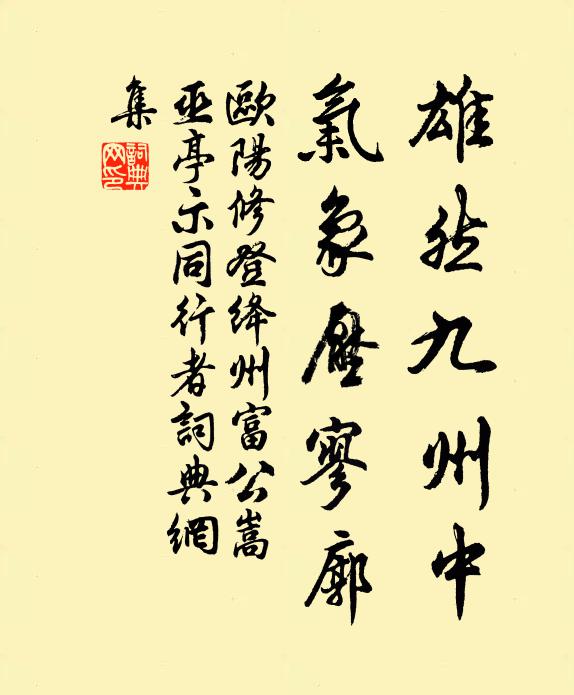 雄然九州中
氣象壓寥廓
歐陽修登絳州富公嵩
巫亭示同行者詞典網
集
詞典網印